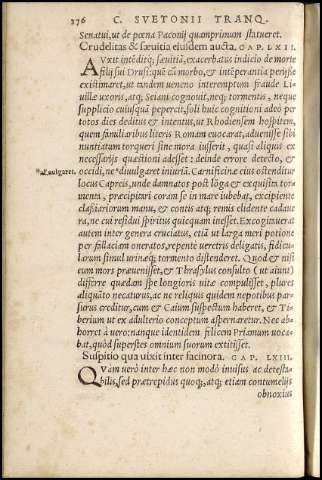 276 C. SVETONII TRANQ.
Senatui, ut de pœna Paconij quamprimum statueret.
Crudelitas & sæuitia eiusdem aucta. CAP. LXII.
AVxit intēditq; sæuitiā, exacerbatus indicio de morte
filij sui Drusi: quē cū morbo, & intēperantia perijsse
existimaret, ut tandem ueneno interemptum fraude Li-
uillæ uxoris, atq; Seiani cognouit, neq; tormentis, neque
supplicio cuiusquā pepercit, soli huic cognitioni adeò per
totos dies deditus & intentus, ut Rhodiensem hospitem,
quem familiaribus literis Romam euocarat, aduenisse sibi
nuntiatum torqueri sine mora iusserit, quasi aliquis ex
necessarijs quæstioni adesset: deinde errore detecto, &
*al. euulgaret. occidi, ne *diuulgaret iniuriā. Carnificinæ eius ostenditur
locus Capreis, unde damnatos post lōga & exquisita tor-
menta, præcipitari coram se in mare iubebat, excipiente
classiariorum manu, & contis atq; remis elidente cadaue
ra, ne cui residui spiritus quicquam inesset. Excogitauerat
autem inter genera cruciatus, etiā ut larga meri potione
per fallaciam oneratos, repentè ueretris deligatis, fidicu-
larum simul urinæq; tormento distenderet. Quod & nisi
eum mors præuenisset, & Thrasyllus consulto (ut aiunt)
differre quædam spe longioris uitæ compulisset, plures
aliquāto necaturus, ac ne reliquis quidem nepotibus par-
surus creditur, cum & Caium suspectum haberet, & Ti-
berium ut ex adulterio conceptum aspernaretur. Nec ab-
horret à uero: nanque identidem felicem Priamum uoca-
bat, quòd superstes omnium suorum extitisset.
Suspitio qua uixit inter facinora. CAP. LXIII.
QVàm uerò inter hæc non modò inuisus ac detesta-
bilis, sed prætrepidus quoq;, atq; etiam contumelijs
obnoxius